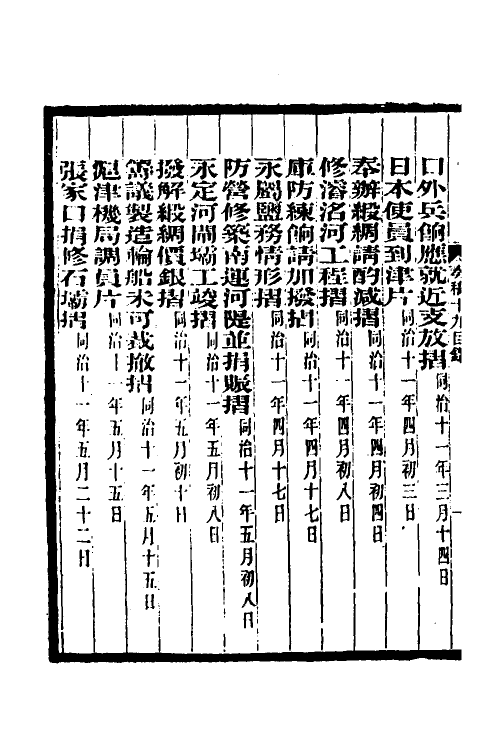 口外兵餉應就近支放摺同治十一年三月十四日
日本使員到津片同治十一年四月初三日
奉辦緞綢請酌減摺同治十一年四月初四日
修濬洺河工程摺同治十一年四月初八日
庫防練餉請加撥摺同治十一年四月十七日
永屬鹽務情形摺同治十一年四月十七日
防營修築南運河隄並捐賑摺同治十一年五月初八日
永定河閘壩工竣摺同治十一年五月初八日
撥解緞綢價銀摺同治十一年五月初十日
籌議製造輪船未可裁撤摺同治十一年五月十五日
滬津機局調員片同治十一年五月十五日
張家口捐修石壩摺同治十一年五月二十二日
奏稿十九目錄
一